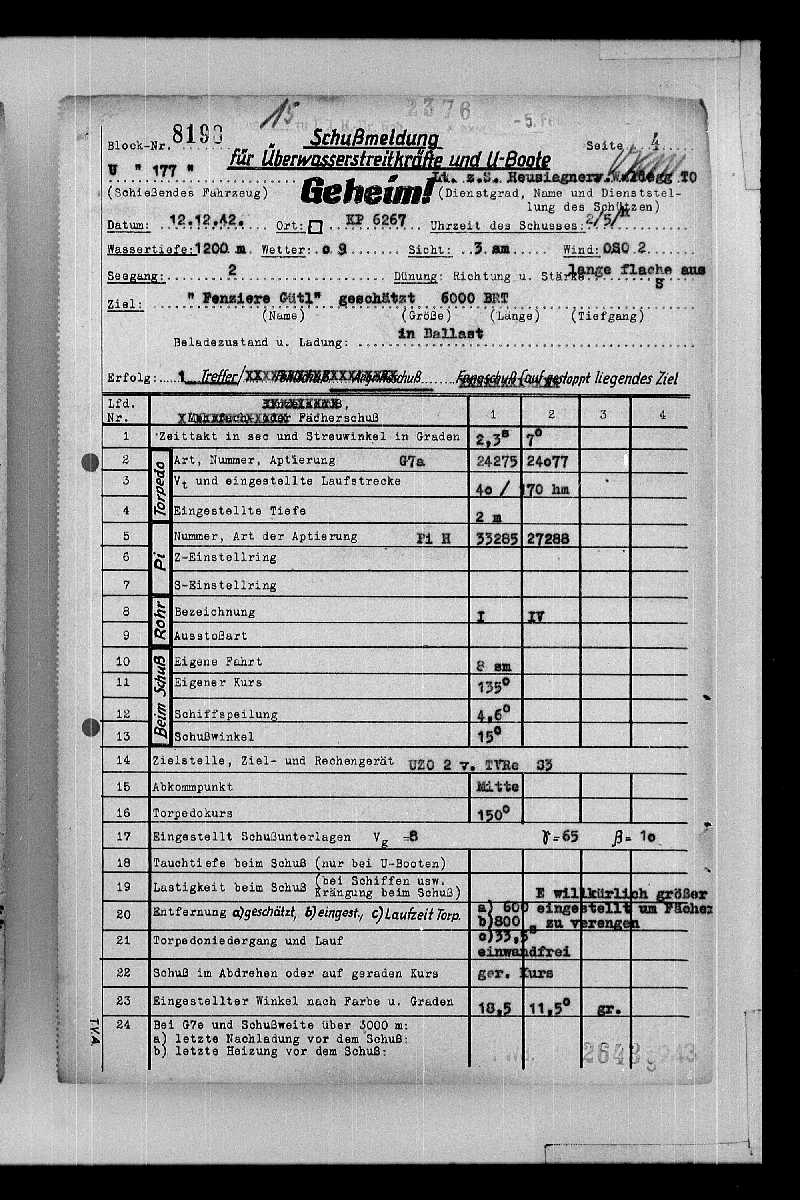 15 2376 -5. Feb
Block-Nr. 8193 Schußmeldung Seite 4
für Überwasserstreitkräfte und U-Boote
U " 177 " Lt. z.S. Heusiagnerv. Waldegg TO
(Schießendes Fahrzeug) Geheim! (Dienstgrad, Name und Dienststel-
lung des Schützen)
Datum: 12.12.42. Ort: KP 6267 Uhrzeit des Schusses: 2/5/
Wassertiefe: 1200 m. Wetter: o 9 Sicht: 3 sm Wind: OSO 2
Seegang: 2 Dünung: Richtung u. Stärke: lange flache aus
S
Ziel: " Fenziere Gütl" geschätzt 6000 BRT
(Name) (Größe) (Länge) (Tiefgang)
Beladezustand u. Ladung: in Ballast
Erfolg: 1 Treffer/ auf gestoppt liegendes Ziel
Lfd.
Nr. Fächerschuß 1 2 3 4
1 Zeittakt in sec und Streuwinkel in Graden 2,3s 7o
Torpedo
2 Art, Nummer, Aptierung G7a 24275 24o77
3 Vt und eingestellte Laufstrecke 4o / 170 hm
4 Eingestellte Tiefe 2 m
Pi
5 Nummer, Art der Aptierung Pi H 33285 27288
6 Z-Einstellring
7 S-Einstellring
Rohr
8 Bezeichnung I IV
9 Ausstoßart
Beim Schuß
10 Eigene Fahrt 8 sm
11 Eigener Kurs 135o
12 Schiffspeilung 4,6o
13 Schußwinkel 15o
14 Zielstelle, Ziel- und Rechengerät UZO 2 v. TVRe S3
15 Abkommpunkt Mitte
16 Torpedokurs 150o
17 Eingestellt Schußunterlagen Vg =8 γ=65 β= 1o
18 Tauchtiefe beim Schuß (nur bei U-Booten)
19 Lastigkeit beim Schuß (bei Schiffen usw.
Krängung beim Schuß) E willkürlich größer
20 Entfernung a)geschätzt, b)eingest., c)Laufzeit Torp. a) 600 eingestellt um Fächer
b)800 zu verengen
21 Torpedoniedergang und Lauf c)33,5s
einwandfrei
22 Schuß im Abdrehen oder auf geraden Kurs ger. Kurs
23 Eingestellter Winkel nach Farbe u. Graden 18,5 11,5o gr.
24 Bei G7e und Schußweite über 3000 m:
a) letzte Nachladung vor dem Schuß:
b) letzte Heizung vor dem Schuß:
TVA